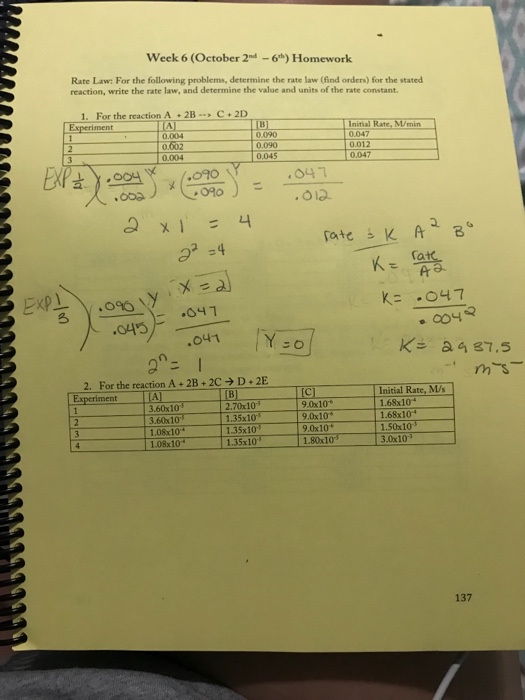 Week 6 (October 2nd – 6th) Homework
Rate Law: For the following problems, determine the rate law (find orders) for the stated
reaction, write the rate law, and determine the value and units of the rate constant.
1. For the reaction A + 2B --> C + 2D
Experiment [A] [B] Initial Rate, M/min
1 0.004 0.090 0.047
2 0.002 0.090 0.012
3 0.004 0.045 0.047
EXP 1/2 ) (.004/.002)^x × (.090/.090)^y = .047/.012
2 x 1 = 4
2² = 4
x = 2
rate = K A² B⁰
K = rate/A2
K = .047/.004²
K = 2937.5
Exp 1/3 ) (.090/.045)^y = .047/.047
Y = 0
2ⁿ = 1
2. For the reaction A + 2B + 2C → D + 2E
Experiment [A] [B] [C] Initial Rate, M/s
1 2.70x10 9.0x10 1.68x10
2 3.60x10 1.35x10 9.0x10 1.68x10
3 1.08x10 1.35x10 9.0x10 1.50x10
4 1.08x10 1.35x10 1.80x10 3.0x10
137